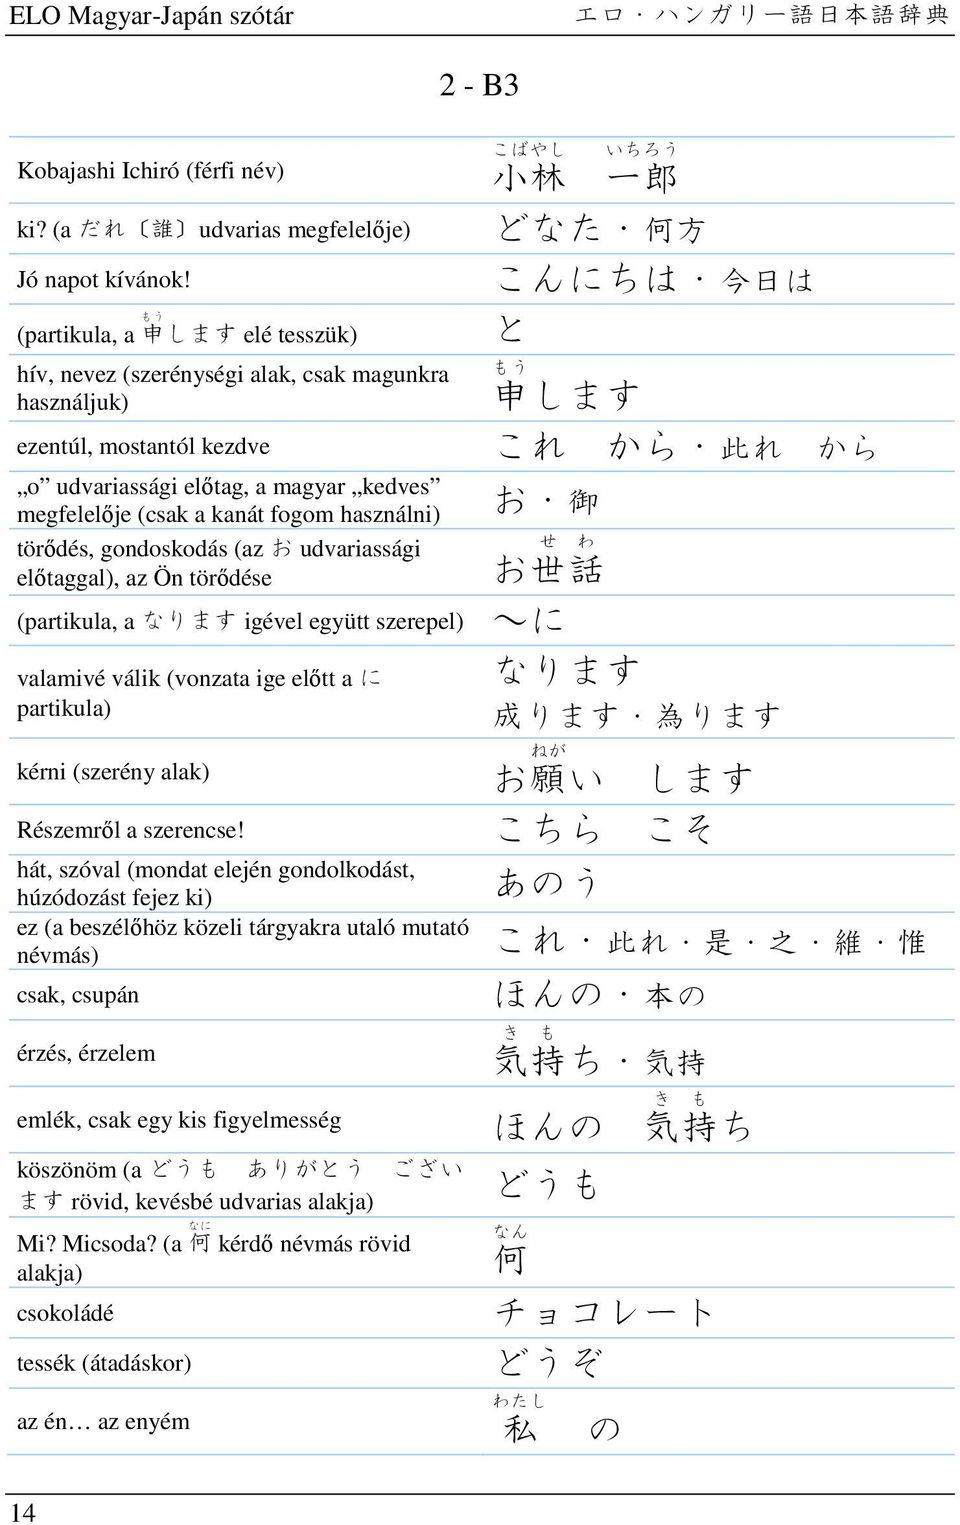 ELO Magyar-Japán szótár エロ・ハンガリー語日本語辞典
2 - B3
こばやし いちろう
Kobajashi Ichiró (férfi név) 小林 一郎
ki? (a だれ〔誰〕udvarias megfelelője) どなた・何方
Jó napot kívánok! こんにちは・今日は
もう
(partikula, a 申します elé tesszük) と
hív, nevez (szerénységi alak, csak magunkra もう
használjuk) 申します
ezentúl, mostantól kezdve これ から・此れ から
„o” udvariassági előtag, a magyar „kedves”
megfelelője (csak a kanát fogom használni) お・御
törődés, gondoskodás (az お udvariassági せ わ
előtaggal), az Ön törődése お世話
(partikula, a なります igével együtt szerepel) ～に
valamivé válik (vonzata ige előtt a に なります
partikula) 成ります・為ります
ねが
kérni (szerény alak) お願い します
Részemről a szerencse! こちら こそ
hát, szóval (mondat elején gondolkodást,
húzódozást fejez ki) あのう
ez (a beszélőhöz közeli tárgyakra utaló mutató
névmás) これ・此れ・是・之・維・惟
csak, csupán ほんの・本の
き も
érzés, érzelem 気持ち・気持
き も
emlék, csak egy kis figyelmesség ほんの 気持ち
köszönöm (a どうも ありがとう ござい
ます rövid, kevésbé udvarias alakja) どうも
なに なん
Mi? Micsoda? (a 何 kérdő névmás rövid
alakja) 何
csokoládé チョコレート
tessék (átadáskor) どうぞ
わたし
az én… az enyém 私 の
14